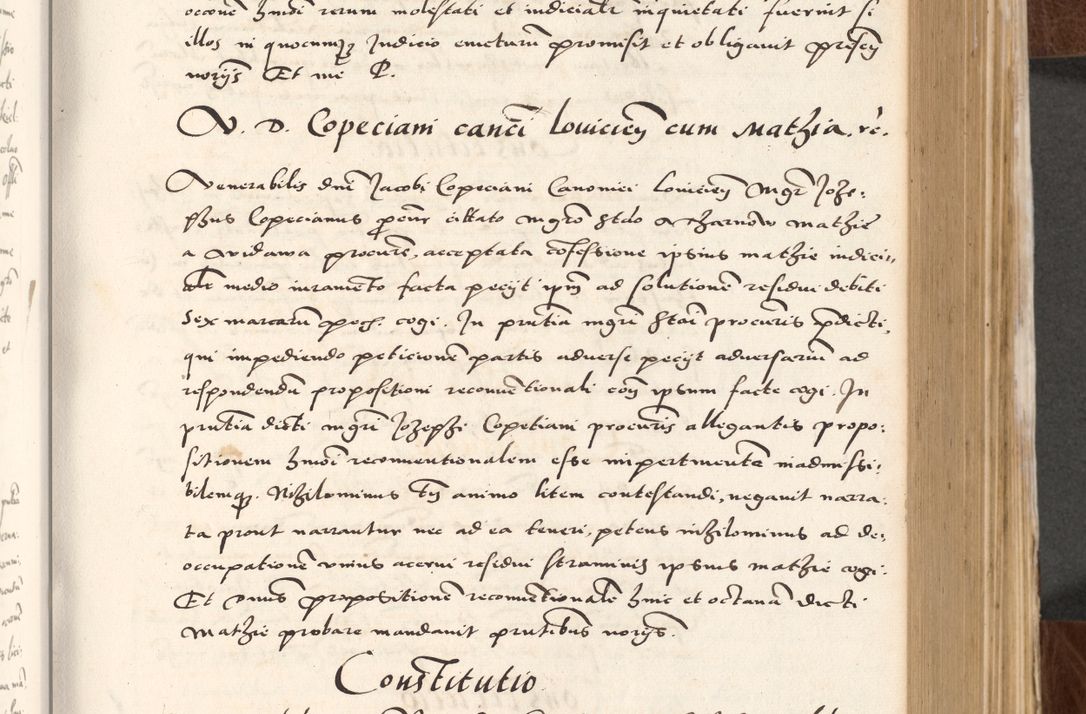 occõne hmõi rerum molestati et iudicialr inquietati fuerint si
illos in quocumq; Judicio emeturũ promisit et obligauit pr̃sen
norijs Et mẽ P.
V. D. Copeciani canci louicien cum Mathia. rẽ.
Venerabilis dni Jacobi Copeciani Canonici louicien Mgr Joze:
phus Copecianus procur cittato mgro Stclo a Tharnow Mathie
a Widawa procure, acceptata cofessione ipsius mathie iudici:
alr medio iuramẽto facta pecijt ipm ad solutionẽ residui debiti
sex marcarũ pech. cogi. In pr̃ntia mgri Stai procuris pdicti,
qui impediendo peticionẽ partis aduerse pecijt aduersariũ ad
respondendũ propositioni reconuẽtionali coñ ipsum facte cogi. In
pr̃ntia dicti mgri Jozephi Copetiani procuris allegantis propo:
sitionem hmõi reconuentionalem esse impertinentẽ inadmissi:
bilemq;. Nihilominus tñ animo litem contestandi, negauit narra:
ta prout narrantur nec ad ea teneri, petens nihilominus ad de:
occupationẽ vnius acerui residui straminis ipsius mathie cogi.
Et Dnus propositionẽ reconuẽtionalẽ hinc et octauã dicti
Mathie probare mandauit pr̃ntibus norijs.
Constitutio